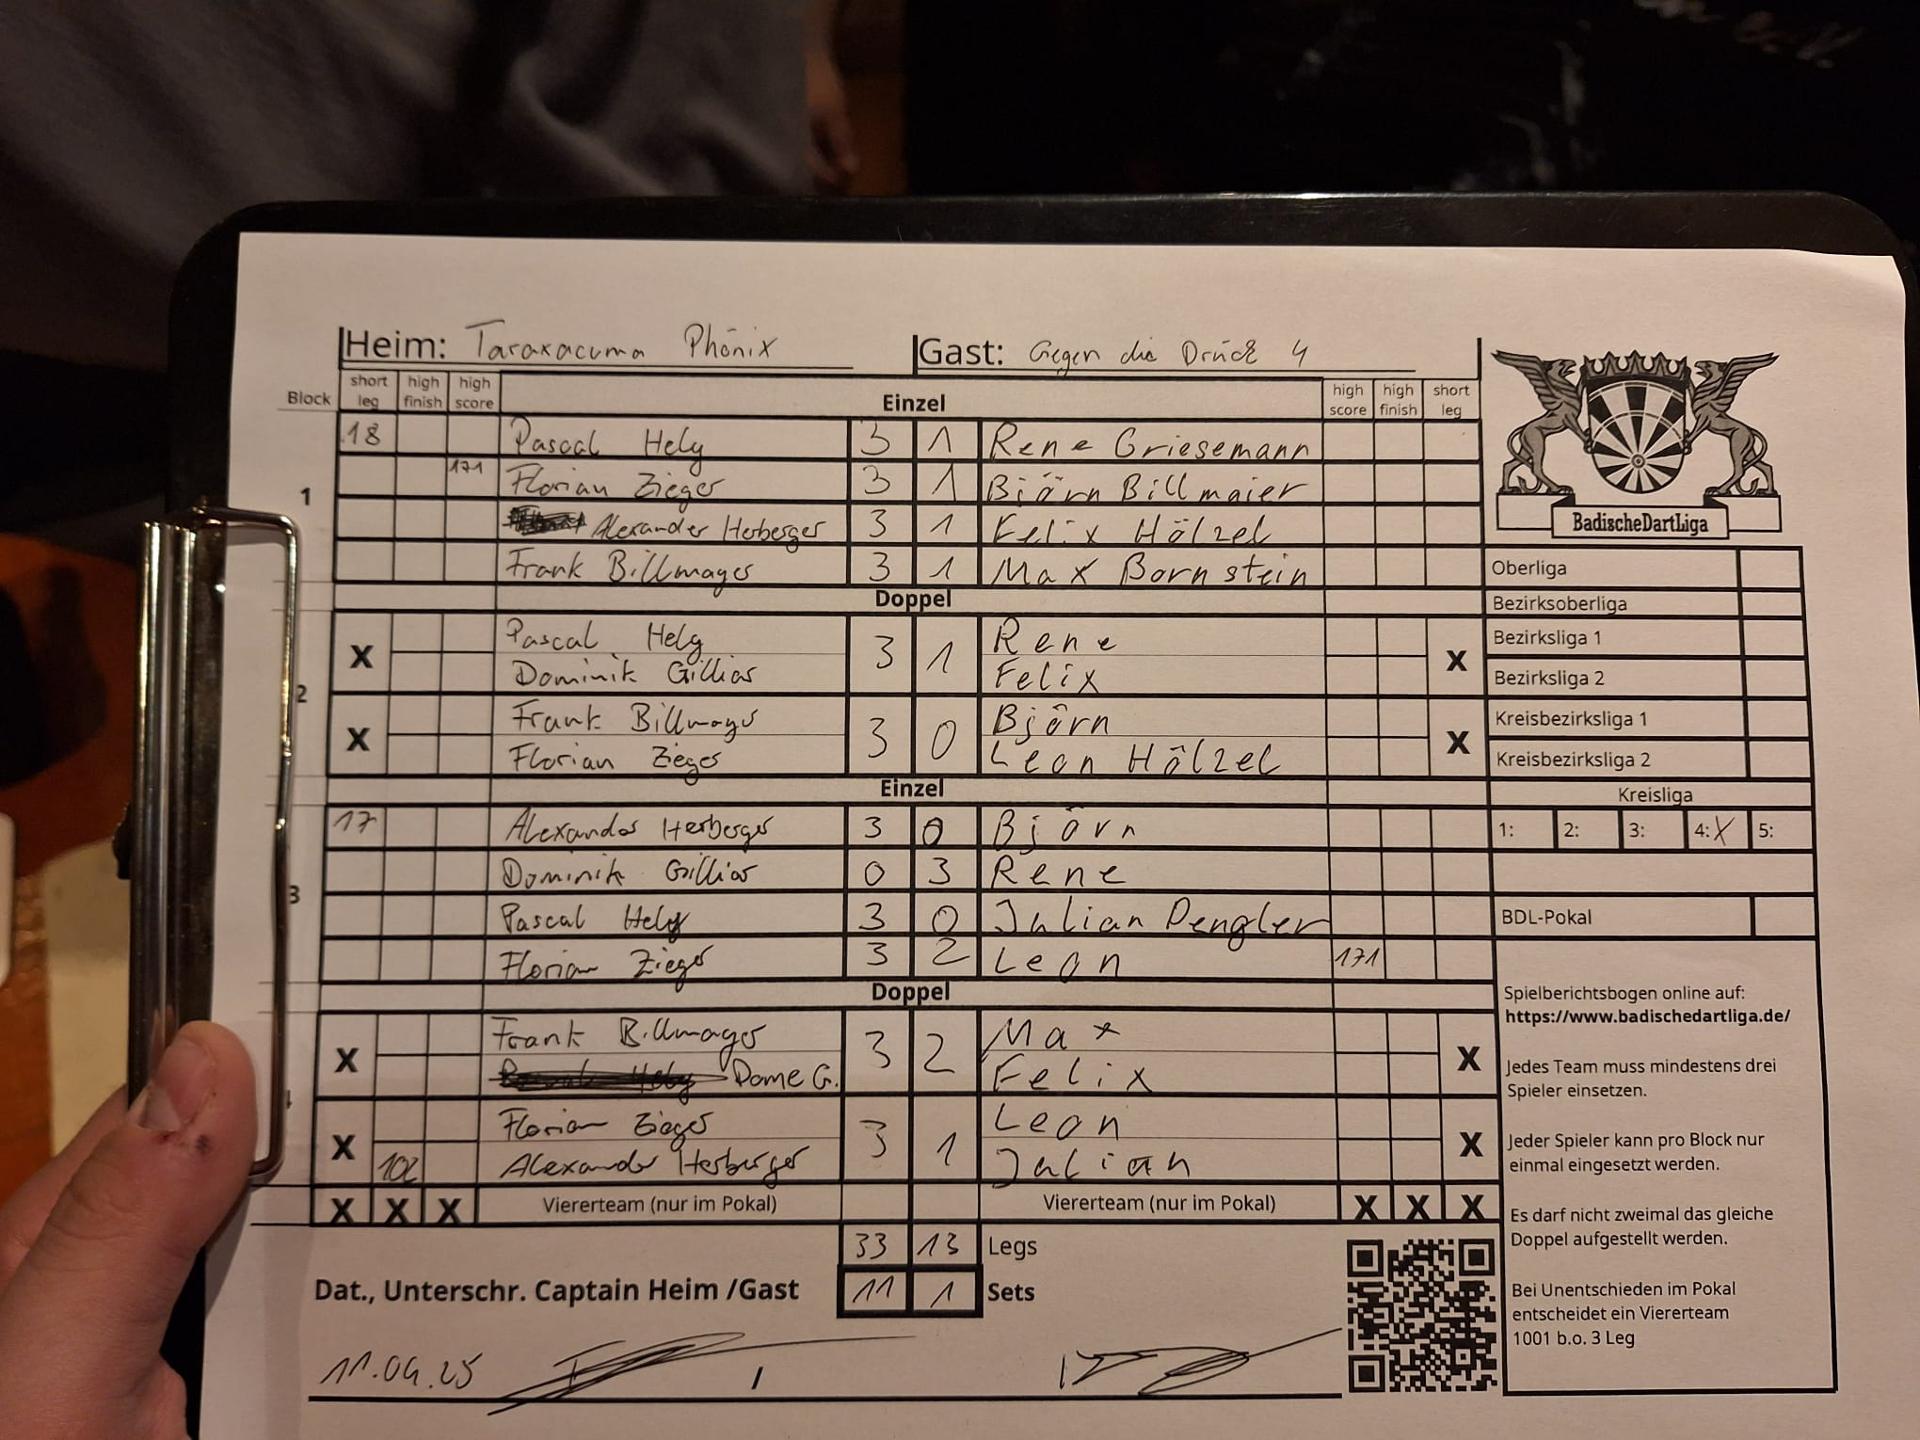 Heim: Taraxacuma Phönix Gast: Gegen die Drück 4
Block short leg high finish high score Einzel high score high finish short leg
1
18 Pascal Hely 3 1 Rene Griesemann
171 Florian Zieger 3 1 Björn Billmaier
Alexander Herberger 3 1 Felix Hölzel
Frank Billmayer 3 1 Max Bornstein
Doppel
2
X Pascal Hely 3 1 Rene X
Dominik Gillias Felix
X Frank Billmayer 3 0 Björn X
Florian Zieger Leon Hölzel
Einzel
3
17 Alexander Herberger 3 0 Björn
Dominik Gillias 0 3 Rene
Pascal Hely 3 0 Julian Dengler
Florian Zieger 3 2 Leon 171
Doppel
X Frank Billmayer 3 2 Max X
Dome G. Felix
X Florian Zieger 3 1 Leon X
102 Alexander Herberger Julian
X X X Viererteam (nur im Pokal) Viererteam (nur im Pokal) X X X
33 13 Legs
Dat., Unterschr. Captain Heim /Gast 11 1 Sets
11.04.25 /
BadischeDartLiga
Oberliga
Bezirksoberliga
Bezirksliga 1
Bezirksliga 2
Kreisbezirksliga 1
Kreisbezirksliga 2
Kreisliga
1: 2: 3: 4: X 5:
BDL-Pokal
Spielberichtsbogen online auf:
https://www.badischedartliga.de/
Jedes Team muss mindestens drei
Spieler einsetzen.
Jeder Spieler kann pro Block nur
einmal eingesetzt werden.
Es darf nicht zweimal das gleiche
Doppel aufgestellt werden.
Bei Unentschieden im Pokal
entscheidet ein Viererteam
1001 b.o. 3 Leg